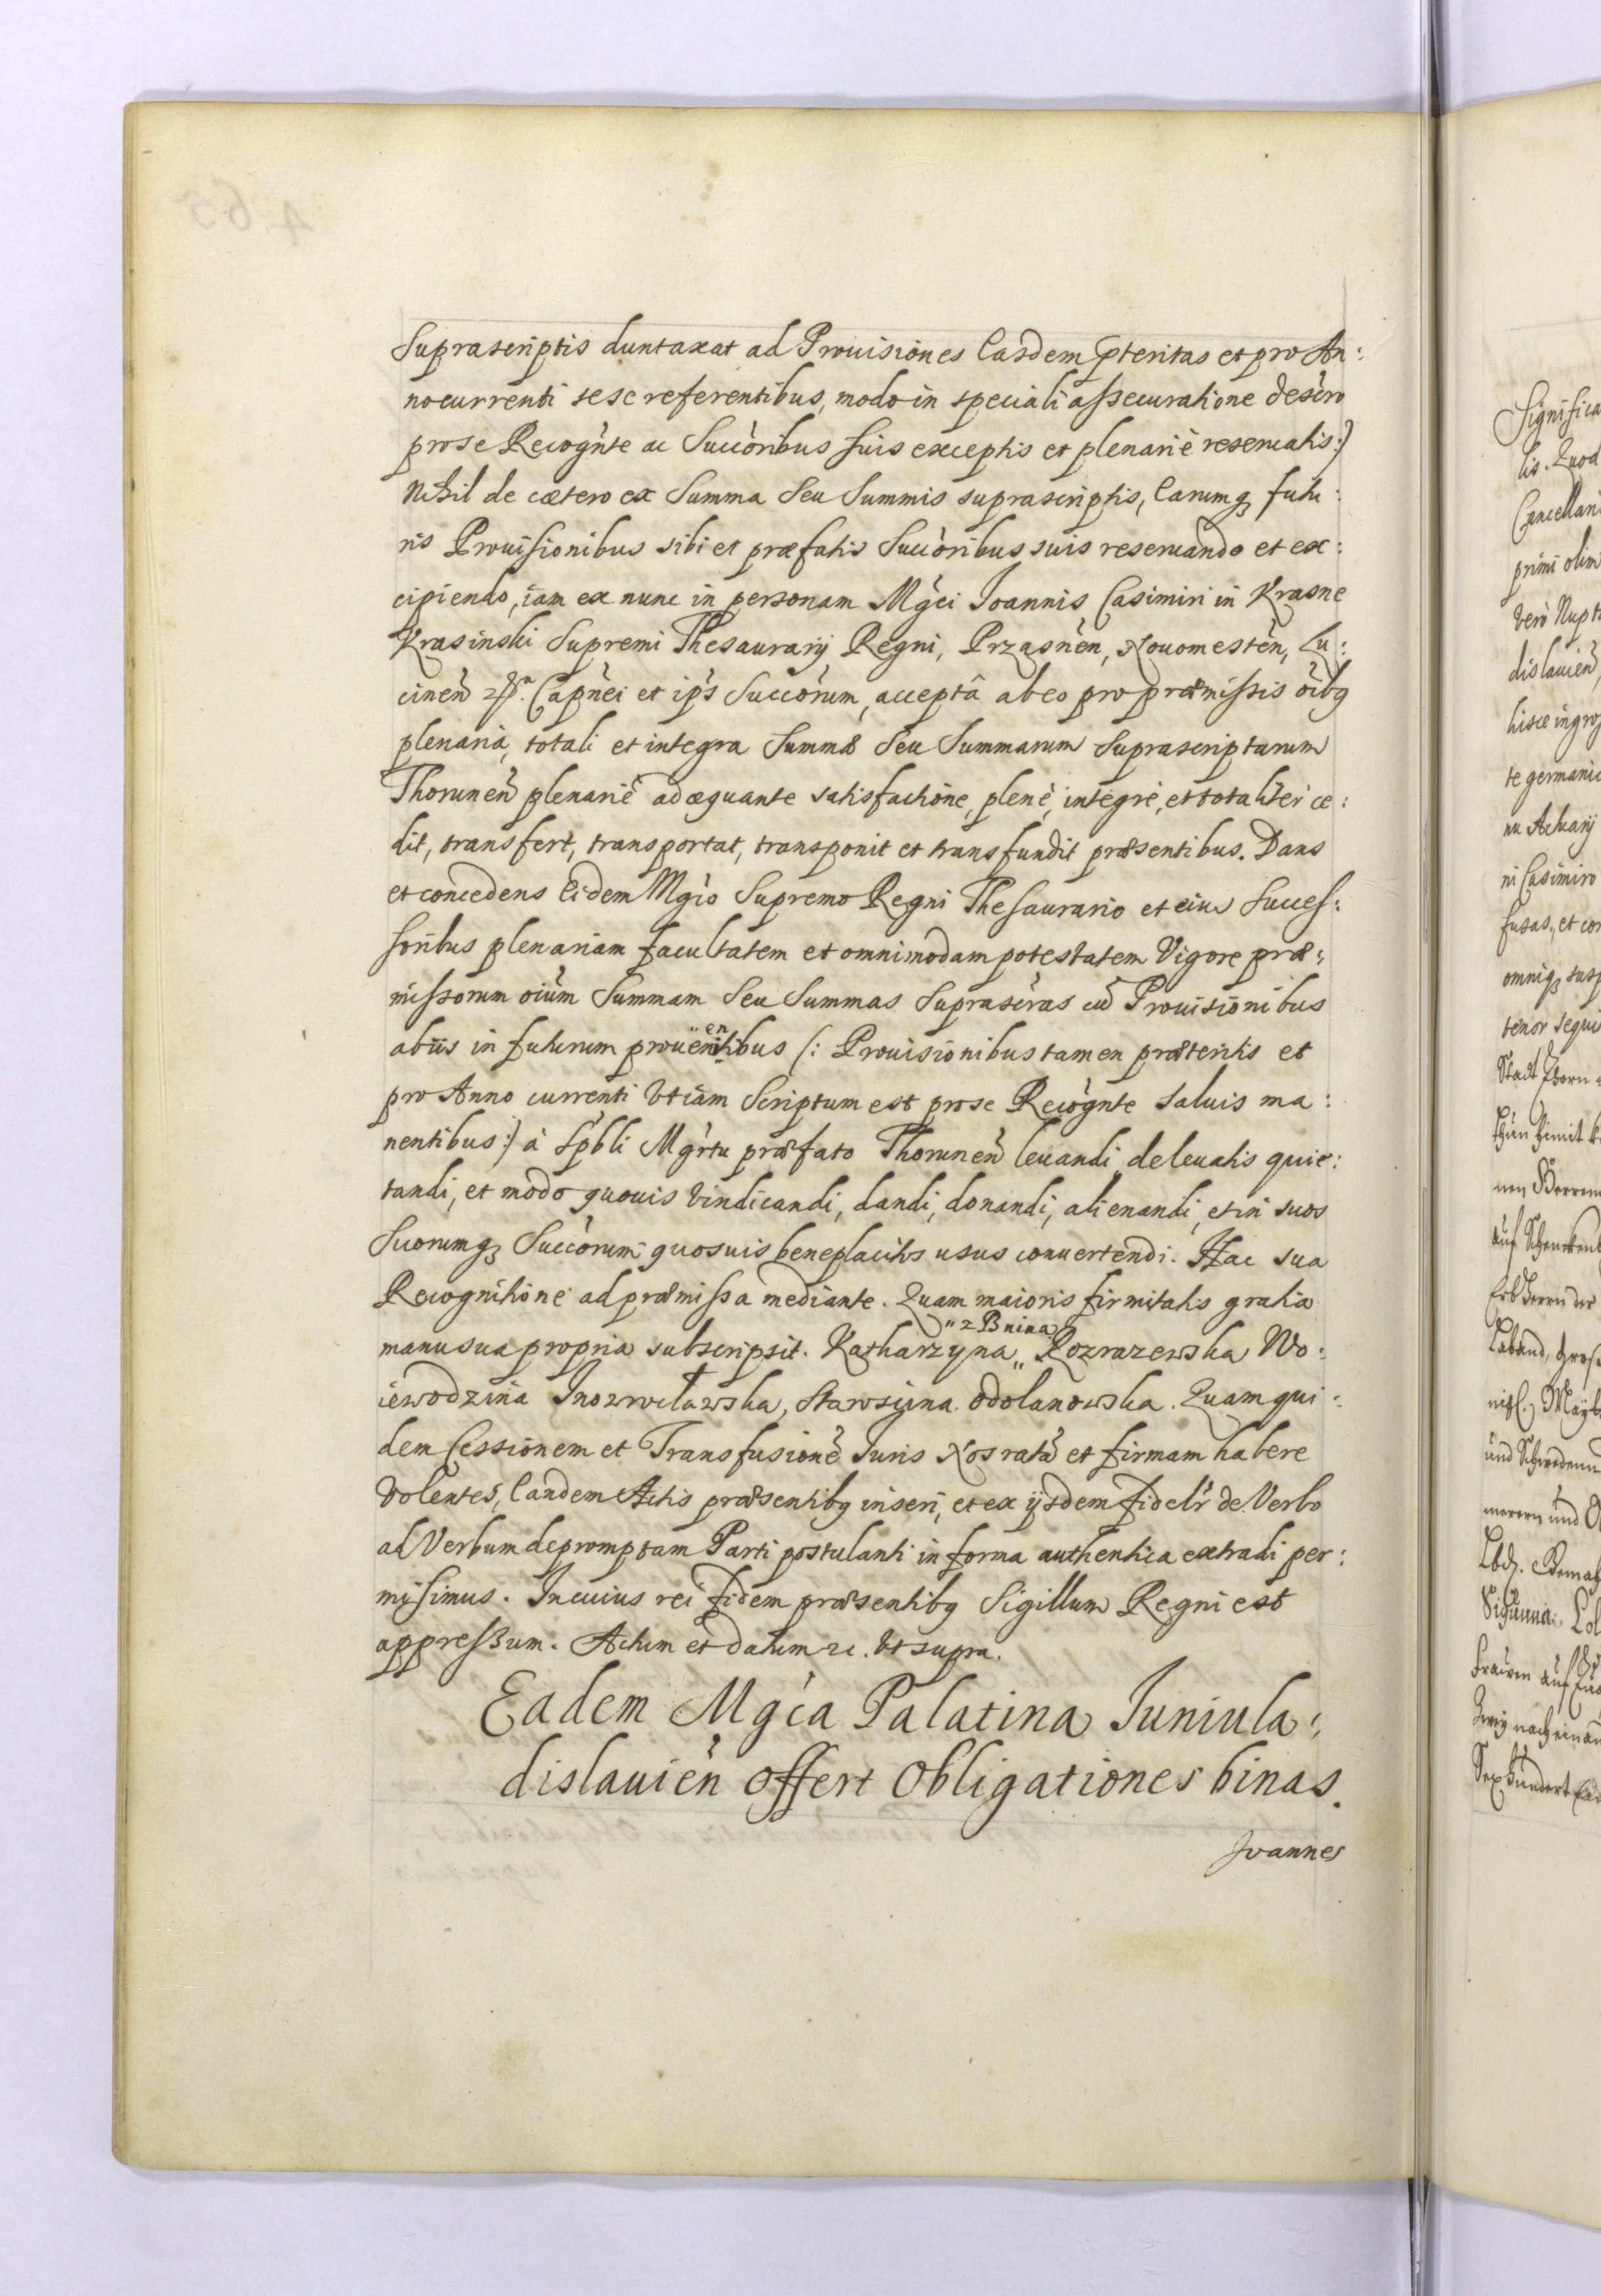 Suprascriptis duntaxat ad Prouisiones Easdem pteritas et pro An:
no currenti sese referentibus, modo in speciali assecuratione descro
pro se Recognte ac Succoribus suis exceptis et plenariè reseruatis:)
Nihil de cætero ex Summa Seu Summis suprascriptis, Earumq futu:
ris Prouisionibus sibi et præfatis Succoribus suis reseruando et ex:
cipiendo, iam ex nunc in personam Mgci Joannis Casimiri in Krasne
Krasinski Supremi Thesaurarij Regni, Przasnen, Nouomesten, Lu:
cinen
Capnei et ips Succorum, acceptâ ab eo pro præmissis oibq
plenaria, totali et integra Summæ Seu Summarum Suprascriptarum
Thorunen plenariè adæquante satisfactione, plenè, integrè, et totaliter ce:
dit, transfert, transportat, transponit et transfundit præsentibus. Dans
et concedens Eidem Mgco Supremo Regni Thesaurario et eius Succes:
soribus plenariam facultatem et omnimodam potestatem Vigore præ:
missorum oium Summam Seu Summas Suprascras cu Prouisionibus
ab iis in futurum prouenentibus (: Prouisionibus tamen præteritis et
pro Anno currenti Vt iam Scriptum est pro se Recognte saluis ma:
nentibus:) à Spbli Mgrtu præfato Thorunen leuandi de leuatis quie:
tandi, et modo quouis Vindicandi, dandi, donandi, alienandi, et in suos
Suorumq Succorum quosuis beneplacitos usus conuertendi. Hac sua
Recognitione ad præmissa mediante. Quam maioris firmitatis gratia
manu sua propria subscripsit. Katharzyna " z Bnina Rozrazewska Wo:
iewodzina Inowrocławska, Stawsijna Odolanowska. Quam qui:
dem Cessionem et Transfusione Iuris Nos rata et firmam habere
Volentes, Eandem Actis præsentibq inseri, et ex ijsdem fidelr de Verbo
ad Verbum depromptam Parti postulanti in forma authentica extradi per:
misimus. In cuius rei fidem præsentibq Sigillum Regni est
appressum. Actum et Datum rc. Vt supra.
Eadem Mgca Palatina Juniula:
dislauien offert Obligationes binas.
Joannes
Significa
lis. Quod
Cancellari
primi olim
Verò Nupt
dislauien,
hisce ingro
te germanic
nu Actuarij
ni Casimiro
fusas, et con
omniq susp
tenor sequi
Stadt Thorn